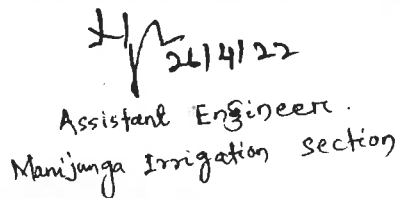 26/4/22
Assistant Engineer.
Manijunga Irrigation section